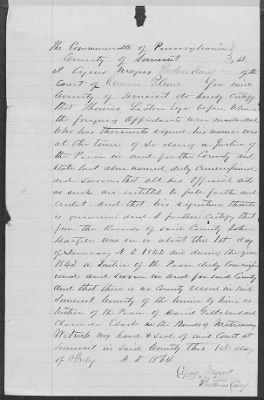 The Commonwealth of Pennsylvania
County of Somerset } SS
I Cyrus Meyers Prothonotary of the
Court of Common Pleas for said
County of Somerset do hereby certify
that Thomas before whom
the foregoing Affidavits were made and
who has thereunto signed his name was
at the time of so doing a Justice of
the Peace in and for the County and
State last above named, duly Commissioned
and sworn that all his official acts
as such are entitled to full faith and
credit. And that his signature thereto
is genuine and I further certify that
from the Records of said County John
was on or about the 1st day
of January A.D. 1842 and during the year
1842 a Justice of the Peace duly commissioned
and sworn in and for said County
And that there is no County record in said
Somerset County of the
Justice of the Peace of David
in the Bonds of Matrimony
Witness my hand & seal of said Court at
Somerset in said County this 1st day
of July A.D. 1864
Cyrus Meyers
Prothonotary